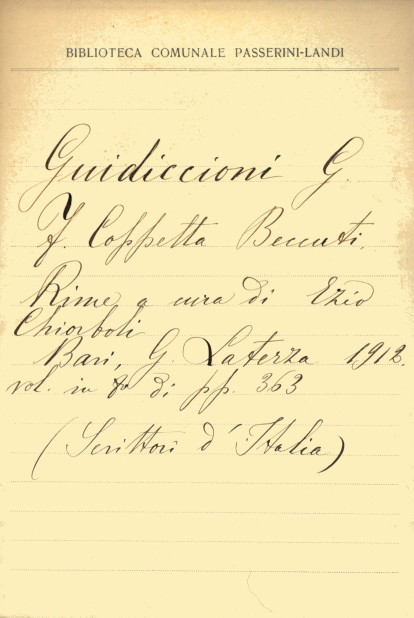 BIBLIOTECA COMUNALE PASSERINI-LANDI
Guidiccioni G.
F. Coppetta Beccuti.
Rime a cura di Ezio
Chiorboli
Bari, G. Laterza 1912.
vol. in 8º di pp. 363
(Scrittori d'Italia)